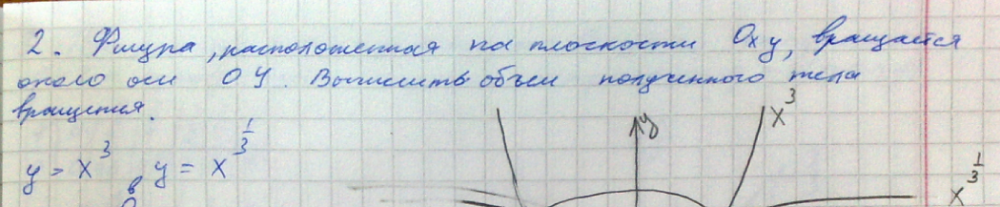 2. Фигура, расположенная на плоскости Oxy, вращается
около оси OY. Вычислить объем полученного тела
вращения.
y = x^3, y = x^{1/3}
y
x^3
x^{1/3}